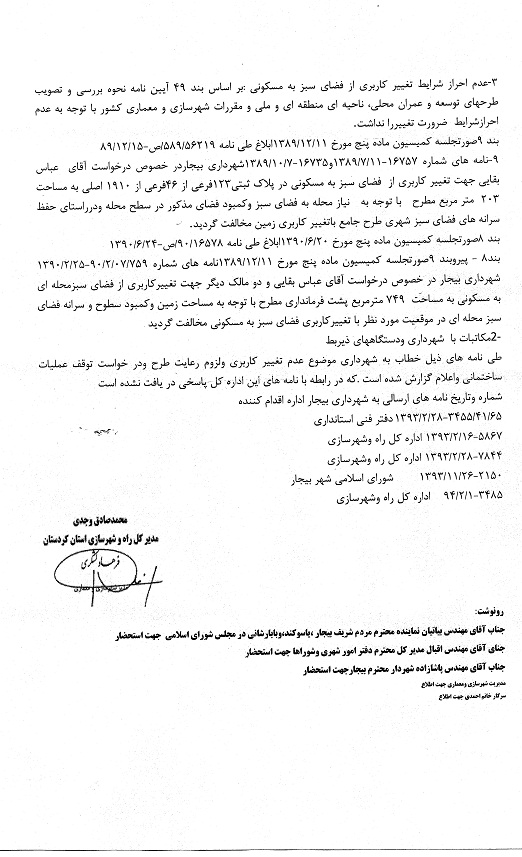 ۳-عدم احراز شرایط تغییر کاربری از فضای سبز به مسکونی :بر اساس بند ۴۹ آیین نامه نحوه بررسی و تصویب
طرحهای توسعه و عمران محلی، ناحیه ای منطقه ای و ملی و مقررات شهرسازی و معماری کشور با توجه به عدم
احرازشرایط ضرورت تغییررا نداشت.
بند ۹صورتجلسه کمیسیون ماده پنج مورخ ۱۳۸۹/۱۲/۱۱ابلاغ طی نامه ۵۸۹/۵۶۲۱۹/ص-۸۹/۱۲/۱۵
۹-نامه های شماره ۱۶۷۵۷-۱۳۸۹/۷/۱۱و۱۶۷۳۵-۱۳۸۹/۱۰/۷شهرداری بیجاردر خصوص درخواست آقای عباس
بقایی جهت تغییر کاربری از فضای سبز به مسکونی در پلاک ثبتی۱۲۳فرعی از ۴۶فرعی از ۱۹۱۰ اصلی به مساحت
۲۰۳ متر مربع مطرح با توجه به نیاز محله به فضای سبز وکمبود فضای مذکور در سطح محله ودرراستای حفظ
سرانه های فضای سبز شهری طرح جامع باتغییر کاربری زمین مخالفت گردید.
بند ۸صورتجلسه کمیسیون ماده پنج مورخ ۱۳۹۰/۶/۲۰ابلاغ طی نامه ۹۰/۱۶۵۷۸/ص-۱۳۹۰/۶/۲۴
بند۸ - پیروبند ۹صورتجلسه کمیسیون ماده پنج مورخ ۱۳۸۹/۱۲/۱۱نامه های شماره ۹۰/۲/۰۷/۷۵۹-۱۳۹۰/۲/۲۵
شهرداری بیجار در خصوص درخواست آقای عباس بقایی و دو مالک دیگر جهت تغییرکاربری از فضای سبزمحله ای
به مسکونی به مساحت ۷۴۹ مترمربع پشت فرمانداری مطرح با توجه به مساحت زمین وکمبود سطوح و سرانه فضای
سبز محله ای در موقعیت مورد نظر با تغییرکاربری فضای سبز به مسکونی مخالفت گردید
-2مکاتبات با شهرداری ودستگاههای ذیربط
طی نامه های ذیل خطاب به شهرداری موضوع عدم تغییر کاربری ولزوم رعایت طرح ودر خواست توقف عملیات
ساختمانی واعلام گزارش شده است .که در رابطه با نامه های این اداره کل پاسخی در یافت نشده است
شماره وتاریخ نامه های ارسالی به شهرداری بیجار اداره اقدام کننده
۳۴۵۵/۴۱/۶۵-۱۳۹۳/۲/۲۸ دفتر فنی استانداری
۵۸۶۷-۱۳۹۳/۲/۱۶ اداره کل راه وشهرسازی
۷۸۴۴-۱۳۹۳/۲/۲۸ اداره کل راه وشهرسازی
۲۱۵۰-۱۳۹۳/۱۱/۲۶ شورای اسلامی شهر بیجار
۳۴۸۵-۹۴/۲/۱ اداره کل راه وشهرسازی
محمدصادق وجدی
مدیر کل راه و شهرسازی استان کردستان
فرهاد لشگری
رونوشت:
جناب آقای مهندس بیاتیان نماینده محترم مردم شریف بیجار ،یاسوکند،وبابارشانی در مجلس شورای اسلامی جهت استحضار
جنای آقای مهندس اقبال مدیر کل محترم دفتر امور شهری وشوراها جهت استحضار
جناب آقای مهندس پاشازاده شهردار محترم بیجارجهت استحضار
مدیریت شهرسازی ومعماری جهت اطلاع
سرکار خانم احمدی جهت اطلاع